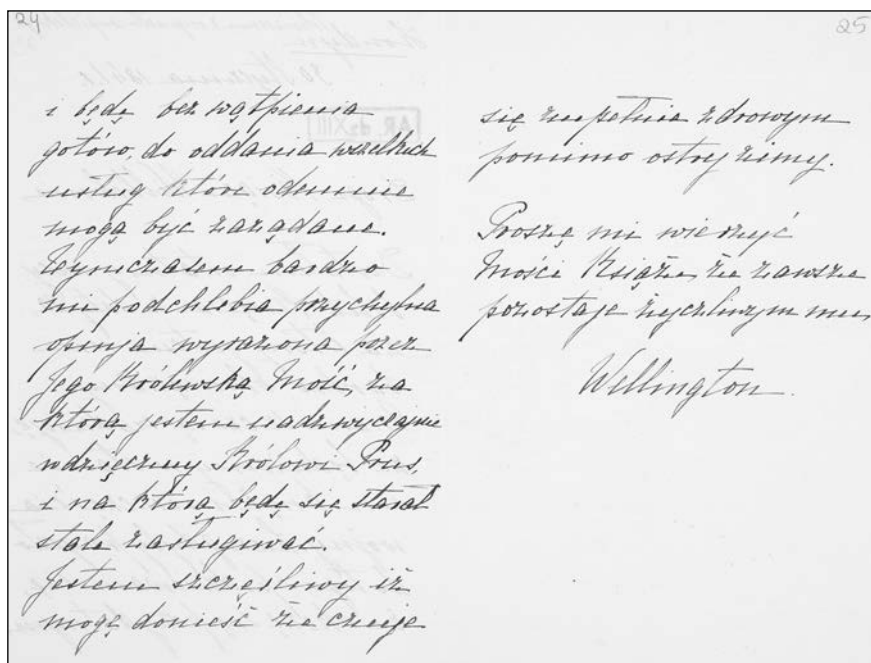 24
i będę bez wątpienia
gotów, do oddania wszelkich
usług które odemnie
mogą być zarządane.
Tymczasem bardzo
mi podchlebia przychylna
opinja wyrażona przez
Jego Królewską Mość, za
którą jestem nadzwyczajnie
wdzięczny Królowi Prus,
i na którą będę się starał
stale zasługiwać.
Jestem szczęśliwy iż
mogę donieść że czuję
25
się zupełnie zdrowym
pomimo ostrej zimy.
Proszę mi wierzyć
Mości Książę, że zawsze
pozostaję życzliwym mu
Wellington.